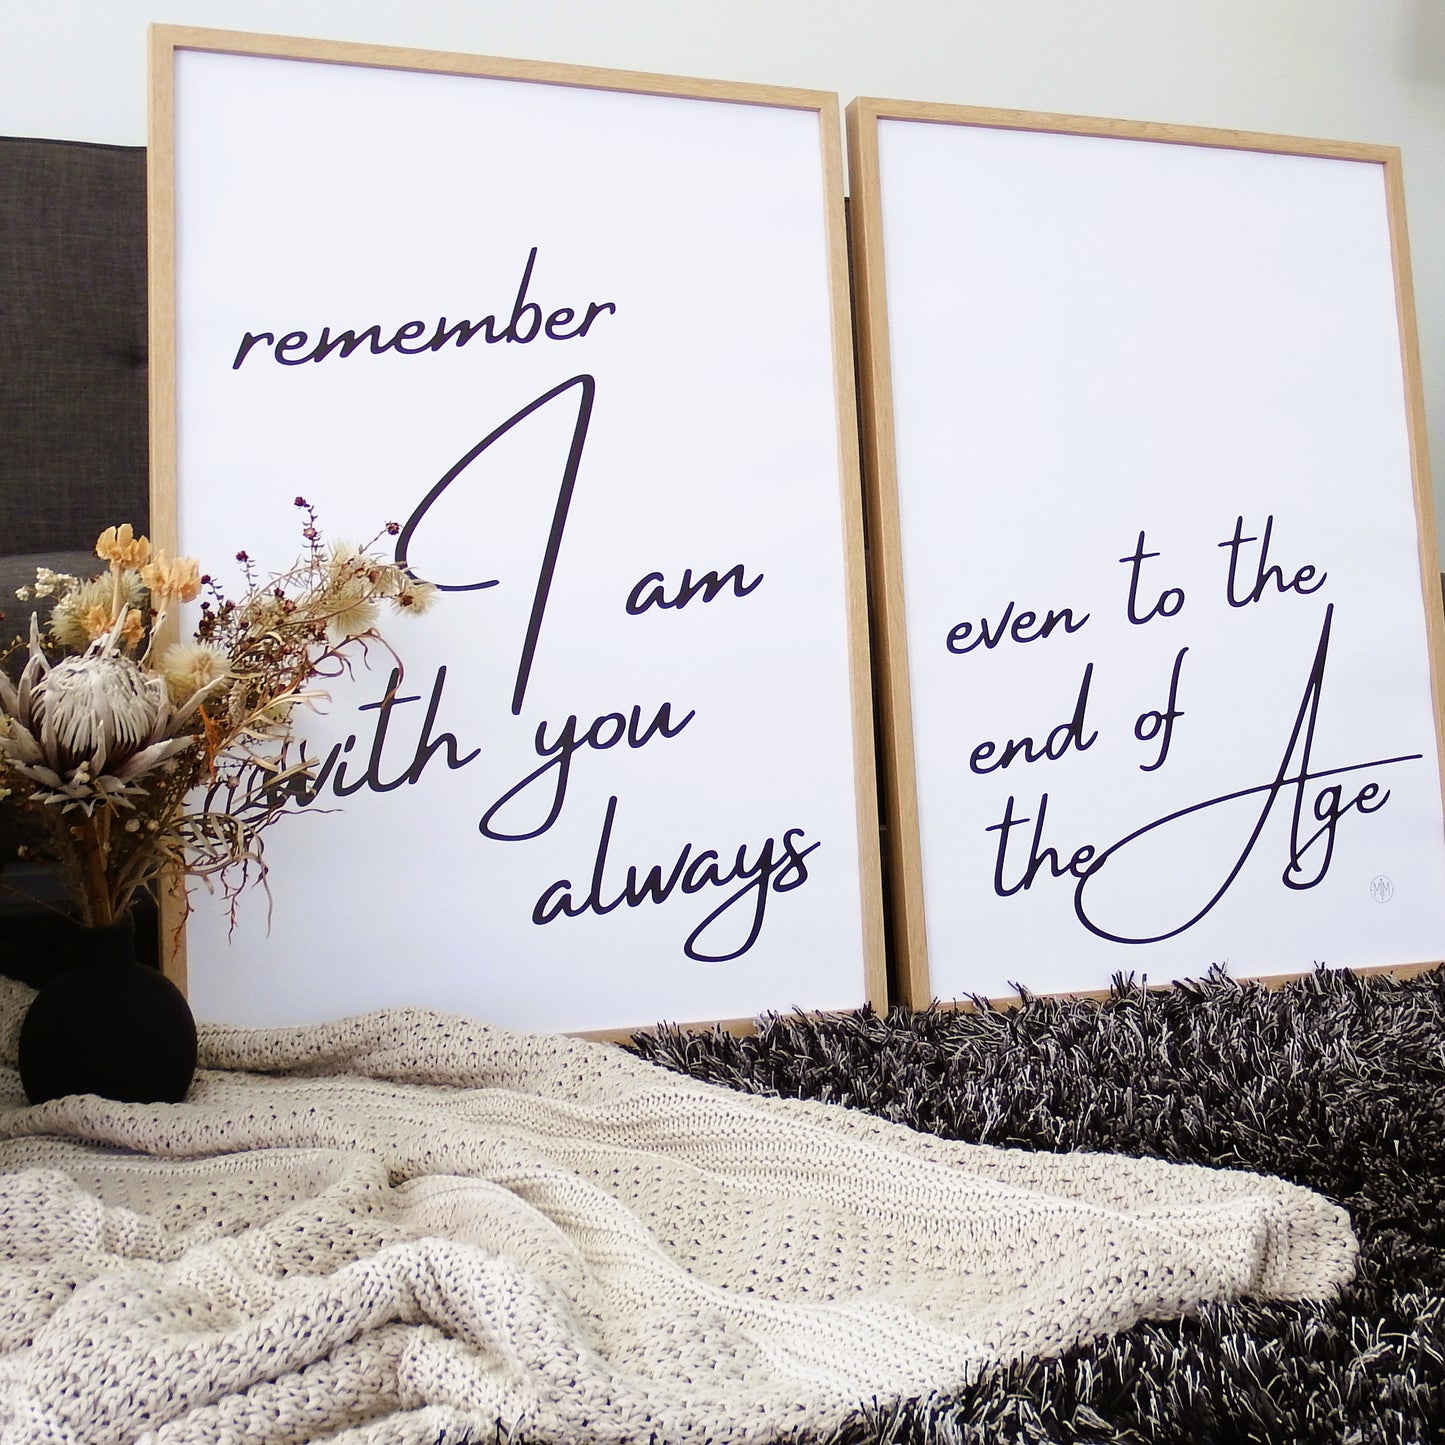 remember
I am
with you
always
even to the
end of
the Age
MM